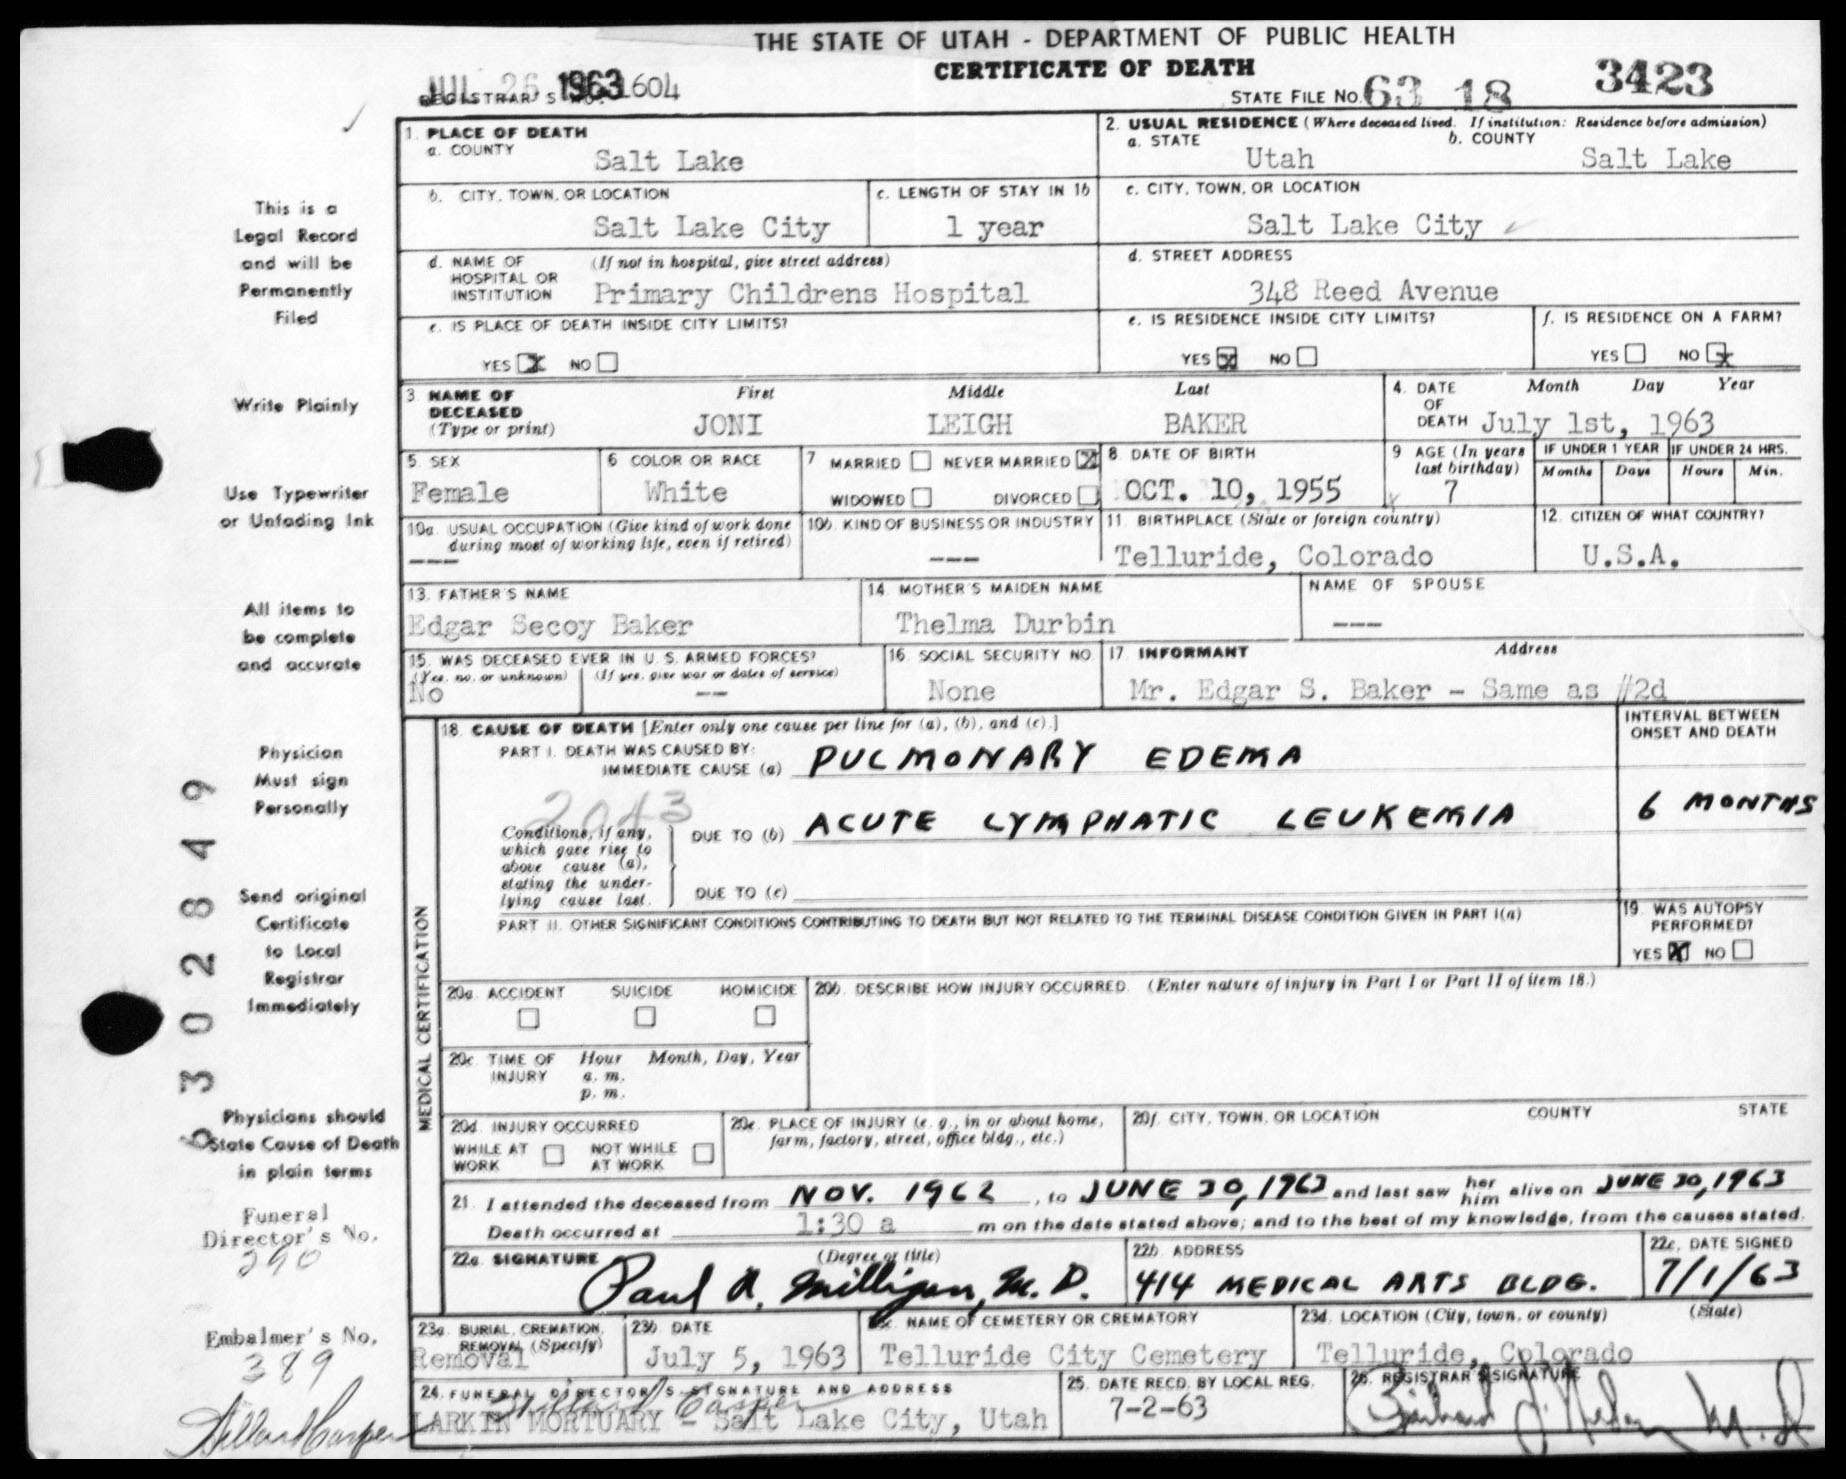 THE STATE OF UTAH - DEPARTMENT OF PUBLIC HEALTH
CERTIFICATE OF DEATH
JUL 26 1963 1604
REGISTRAR'S NO.
STATE FILE NO. 63 18 3423
This is a
Legal Record
and will be
Permanently
Filed
Write Plainly
Use Typewriter
or Unfading Ink
All items to
be complete
and accurate
Physician
Must sign
Personally
Send original
Certificate
to Local
Registrar
Immediately
Physicians should
State Cause of Death
in plain terms
Funeral
Director's No.
290
Embalmer's No.
389
Dillard Casper
6302849
1. PLACE OF DEATH
a. COUNTY
Salt Lake
2. USUAL RESIDENCE (Where deceased lived. If institution: Residence before admission)
a. STATE b. COUNTY
Utah Salt Lake
b. CITY, TOWN, OR LOCATION
Salt Lake City
c. LENGTH OF STAY IN 1b
1 year
c. CITY, TOWN, OR LOCATION
Salt Lake City
d. NAME OF HOSPITAL OR INSTITUTION (If not in hospital, give street address)
Primary Childrens Hospital
d. STREET ADDRESS
348 Reed Avenue
e. IS PLACE OF DEATH INSIDE CITY LIMITS?
YES X NO
e. IS RESIDENCE INSIDE CITY LIMITS?
YES X NO
f. IS RESIDENCE ON A FARM?
YES NO X
3. NAME OF DECEASED (Type or print)
First Middle Last
JONI LEIGH BAKER
4. DATE OF DEATH Month Day Year
July 1st, 1963
5. SEX
Female
6 COLOR OR RACE
White
7 MARRIED NEVER MARRIED X
WIDOWED DIVORCED
8. DATE OF BIRTH
OCT. 10, 1955
9 AGE (In years last birthday)
7
IF UNDER 1 YEAR IF UNDER 24 HRS.
Months Days Hours Min.
10a. USUAL OCCUPATION (Give kind of work done during most of working life, even if retired)
---
10b. KIND OF BUSINESS OR INDUSTRY
---
11. BIRTHPLACE (State or foreign country)
Telluride, Colorado
12. CITIZEN OF WHAT COUNTRY?
U.S.A.
13. FATHER'S NAME
Edgar Secoy Baker
14. MOTHER'S MAIDEN NAME
Thelma Durbin
NAME OF SPOUSE
---
15. WAS DECEASED EVER IN U. S. ARMED FORCES?
(Yes, no, or unknown) (If yes, give war or dates of service)
No --
16. SOCIAL SECURITY NO.
None
17. INFORMANT Address
Mr. Edgar S. Baker - Same as #2d
MEDICAL CERTIFICATION
18. CAUSE OF DEATH [Enter only one cause per line for (a), (b), and (c).]
INTERVAL BETWEEN ONSET AND DEATH
PART I. DEATH WAS CAUSED BY:
IMMEDIATE CAUSE (a) PULMONARY EDEMA
2043
Conditions, if any, which gave rise to above cause (a), stating the underlying cause last.
DUE TO (b) ACUTE LYMPHATIC LEUKEMIA 6 MONTHS
DUE TO (c)
PART II. OTHER SIGNIFICANT CONDITIONS CONTRIBUTING TO DEATH BUT NOT RELATED TO THE TERMINAL DISEASE CONDITION GIVEN IN PART I(a)
19. WAS AUTOPSY PERFORMED?
YES X NO
20a. ACCIDENT SUICIDE HOMICIDE
20b. DESCRIBE HOW INJURY OCCURRED. (Enter nature of injury in Part I or Part II of item 18.)
20c. TIME OF INJURY Hour Month, Day, Year
a. m.
p. m.
20d. INJURY OCCURRED
WHILE AT WORK NOT WHILE AT WORK
20e. PLACE OF INJURY (e. g., in or about home, farm, factory, street, office bldg., etc.)
20f. CITY, TOWN, OR LOCATION COUNTY STATE
21. I attended the deceased from NOV. 1962, to JUNE 30, 1963 and last saw her him alive on JUNE 30, 1963
Death occurred at 1:30 a m on the date stated above; and to the best of my knowledge, from the causes stated.
22a. SIGNATURE (Degree or title)
Paul A. Milligan, M. D.
22b. ADDRESS
414 MEDICAL ARTS BLDG.
22c. DATE SIGNED
7/1/63
23a. BURIAL, CREMATION, REMOVAL (Specify)
Removal
23b. DATE
July 5, 1963
23c. NAME OF CEMETERY OR CREMATORY
Telluride City Cemetery
23d. LOCATION (City, town, or county) (State)
Telluride, Colorado
24. FUNERAL DIRECTOR'S SIGNATURE AND ADDRESS
Dillard Casper
LARKIN MORTUARY - Salt Lake City, Utah
25. DATE RECD. BY LOCAL REG.
7-2-63
26. REGISTRAR'S SIGNATURE